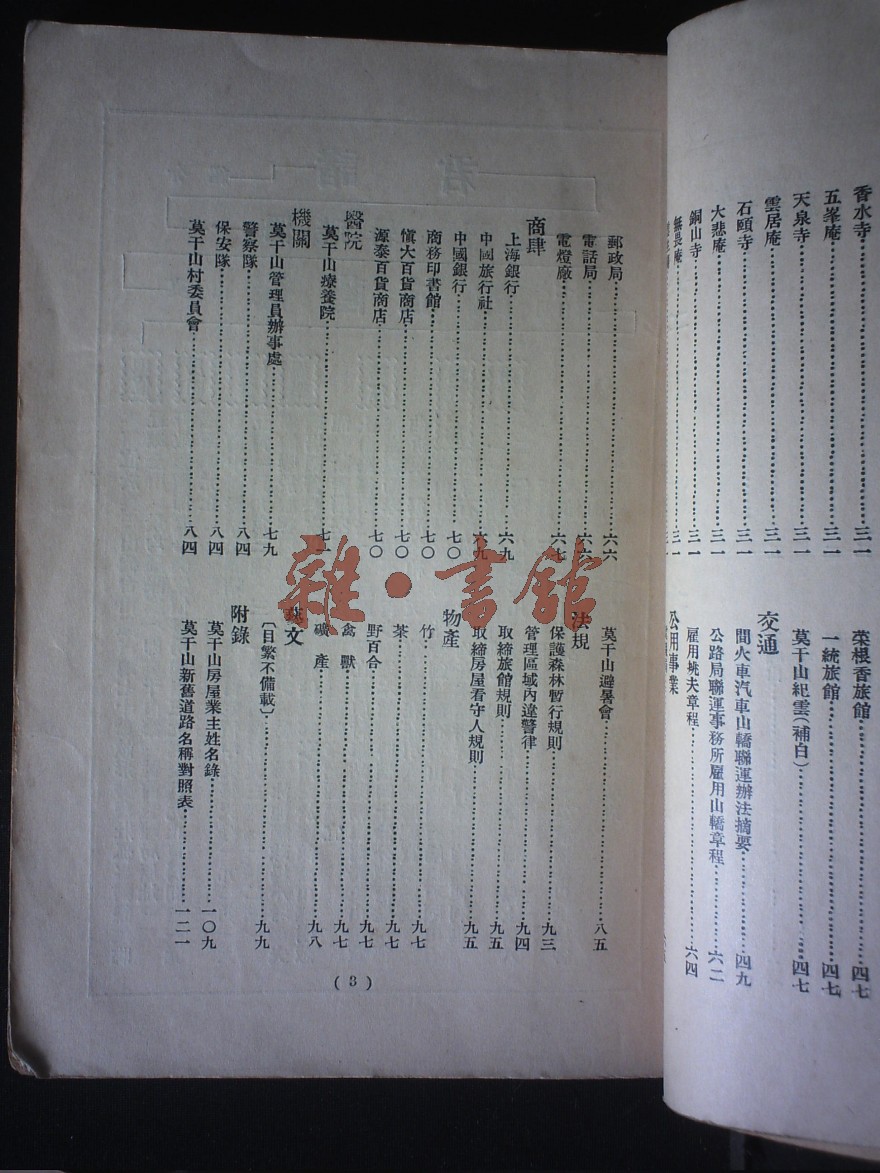 香水寺 三一
五峯庵 三一
天泉寺 三一
雲居庵 三一
石頤寺 三一
大悲庵 三一
銅山寺 三一
無畏庵 三一
榮根香旅館 四七
一統旅館 四七
莫干山紀雲(補白) 四七
交通
間火車汽車山轎聯運辦法摘要 四九
公路局聯運事務所雇用山轎章程 六二
雇用挑夫章程 六四
公用事業
郵政局 六六
電話局 六六
電燈廠 六七
商肆
上海銀行 六九
中國旅行社 六九
中國銀行 七〇
商務印書館 七〇
愼大百貨商店 七〇
源泰百貨商店 七〇
醫院
莫干山療養院 七一
機關
莫干山管理員辦事處 七九
警察隊 八四
保安隊 八四
莫干山村委員會 八四
莫干山避暑會 八五
法規
保護森林暫行規則 九三
管理區域內違警律 九四
取締旅館規則 九五
取締房屋看守人規則 九五
物產
竹 九七
茶 九七
野百合 九七
禽獸 九七
礦產 九八
文
〔目繁不備載〕 九九
附錄
莫干山房屋業主姓名錄 一〇九
莫干山新舊道路名稱對照表 一二一
(3)
雜·書館